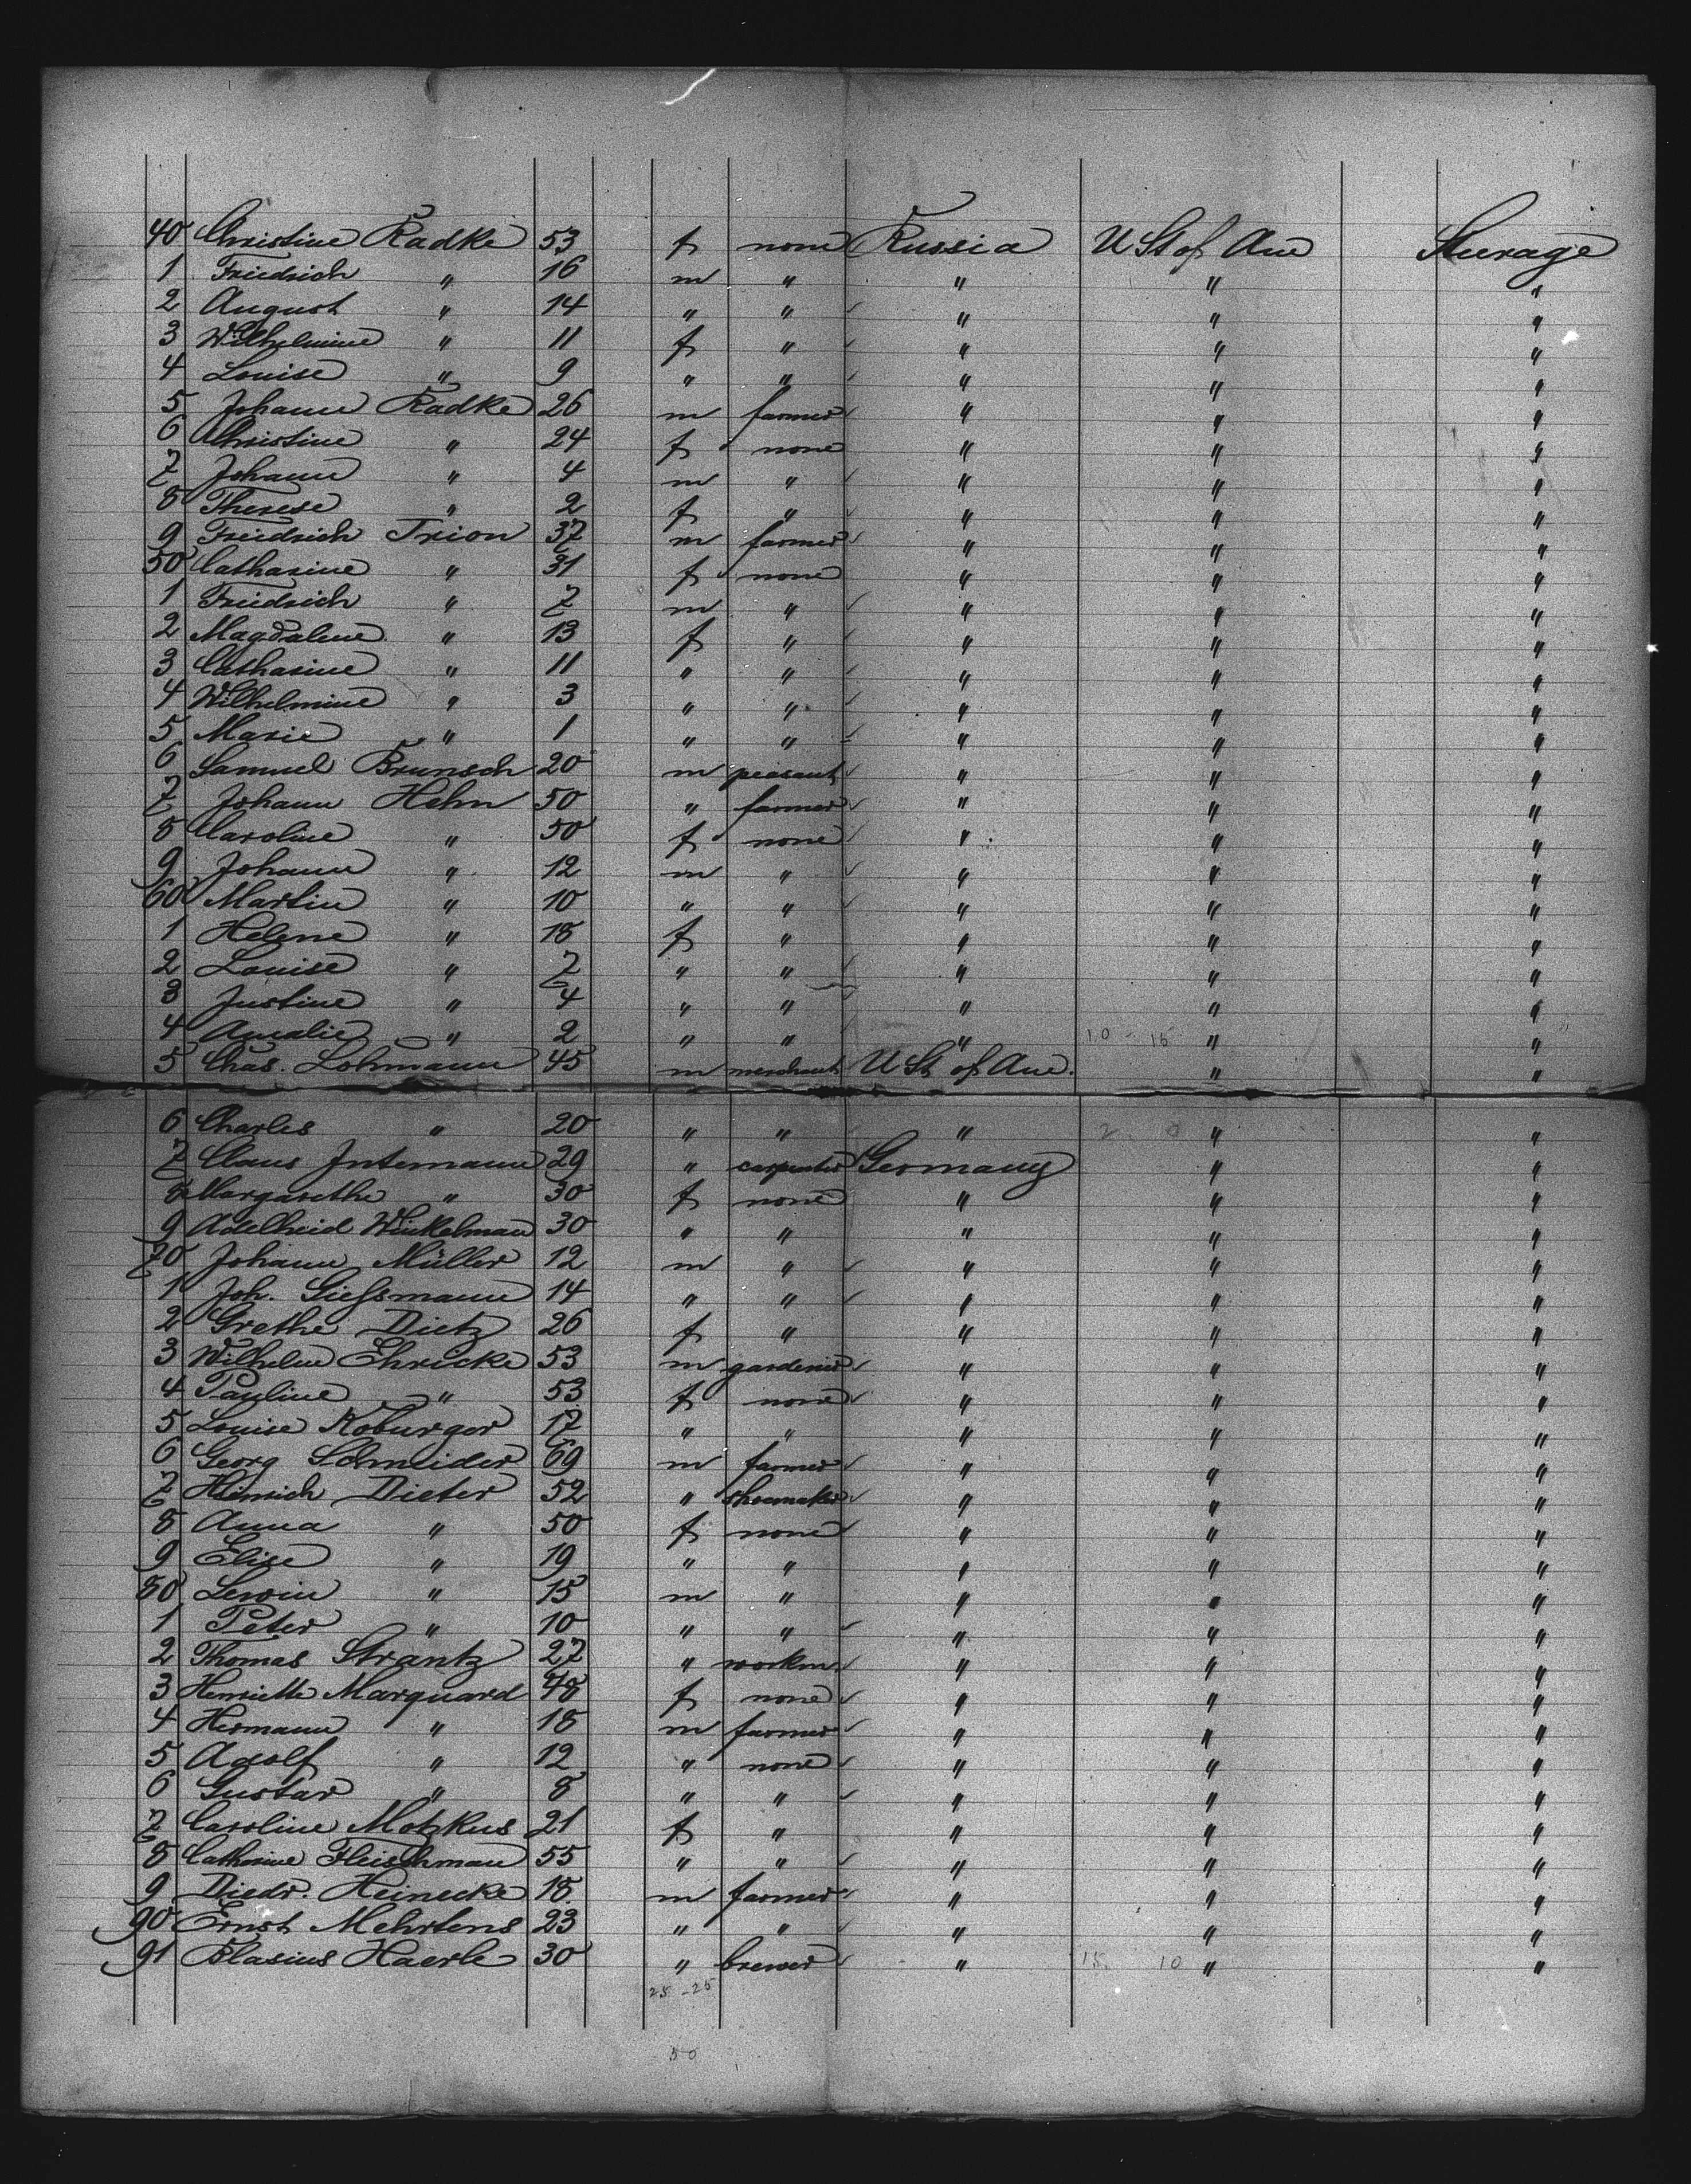 40 Christine Radke 53 f none Russia U St of Am Steerage
1 Friedrich " 16 m " " " "
2 August " 14 " " " " "
3 Wilhelmine " 11 f " " " "
4 Louise " 9 " " " " "
5 Johann Radke 26 m farmer " " "
6 Christine " 24 f none " " "
7 Johann " 4 m " " " "
8 Therese " 2 f " " " "
9 Friedrich Trion 37 m farmer " " "
50 Catharine " 31 f none " " "
1 Friedrich " 7 m " " " "
2 Magdalene " 13 f " " " "
3 Catharine " 11 " " " " "
4 Wilhelmine " 3 " " " " "
5 Marie " 1 " " " " "
6 Samuel Brunsch 20 m peasant " " "
7 Johann Hehn 50 " farmer " " "
8 Caroline " 50 f none " " "
9 Johann " 12 m " " " "
60 Martin " 10 " " " " "
1 Helene " 18 f " " " "
2 Louise " 7 " " " " "
3 Justine " 4 " " " " "
4 Amalie " 2 " " " 10 - 15 " "
5 Chas. Lohmann 45 m merchant U St of Am. " "
6 Charles " 20 " " " 2 0 " "
7 Claus Intemann 29 " carpenter Germany " "
8 Margarethe " 30 f none " " "
9 Adelheid Winkelman 30 " " " " "
70 Johann Müller 12 m " " " "
1 Joh. Gießmann 14 " " " " "
2 Grethe Dietz 26 f " " " "
3 Wilhelm Ehricke 53 m gardener " " "
4 Pauline " 53 f none " " "
5 Louise Koburger 17 " " " " "
6 Georg Schneider 69 m farmer " " "
7 Heinrich Dieter 52 " shoemaker " " "
8 Anna " 50 f none " " "
9 Elise " 19 " " " " "
80 Lewin " 15 m " " " "
1 Peter " 10 " " " " "
2 Thomas Strantz 27 " workm. " " "
3 Henriette Marquard 48 f none " " "
4 Hermann " 18 m farmer " " "
5 Adolf " 12 " none " " "
6 Gustav " 8 " " " " "
7 Caroline Motzkus 21 f " " " "
8 Catharine Fleischman 55 " " " " "
9 Diedr. Heinecke 18 m farmer " " "
90 Ernst Mehrtens 23 " " " " "
91 Blasius Haerle 30 " brewer " 15 10 " "
25 - 25
50